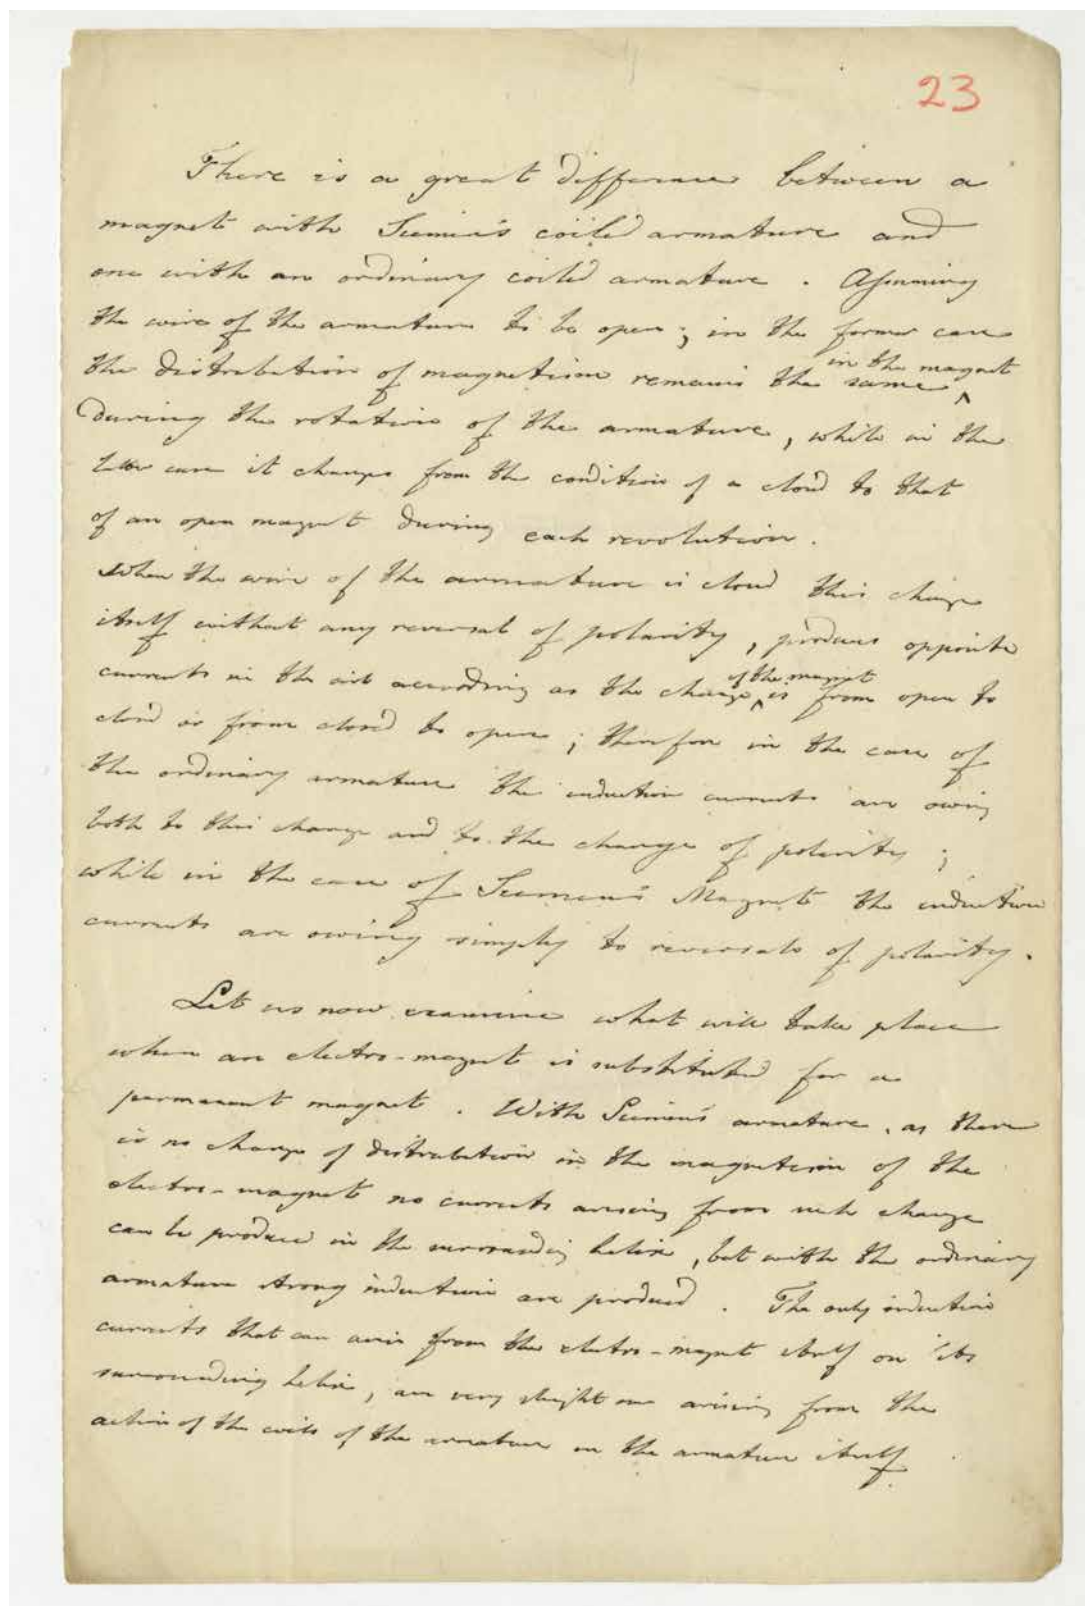 23
There is a great difference between a
magnet with Siemens's coiled armature and
one with an ordinary coiled armature. Assuming
the wire of the armature to be open; in the former case
in the magnet
the distribution of magnetism remains the same
during the rotation of the armature, while in the
latter case it changes from the condition of a closed to that
of an open magnet during each revolution.
When the wire of the armature is closed this change
itself without any reversal of polarity, produces opposite
of the magnet
currents in the according as the change is from open to
closed or from closed to open; therefore in the case of
the ordinary armature the induction currents are owing
both to this change and to the change of polarity;
while in the case of Siemens's Magnet the induction
currents are owing simply to reversals of polarity.
Let us now examine what will take place
when an electro-magnet is substituted for a
permanent magnet. With Siemens's armature, as there
is no change of distribution in the magnetism of the
electro-magnet no currents arising from such change
can be produced in the surrounding helix, but with the ordinary
armature strong induction are produced. The only induction
currents that can arise from the electro-magnet itself on its
surrounding helix, are very slight ones arising from the
action of the coils of the armature on the armature itself.